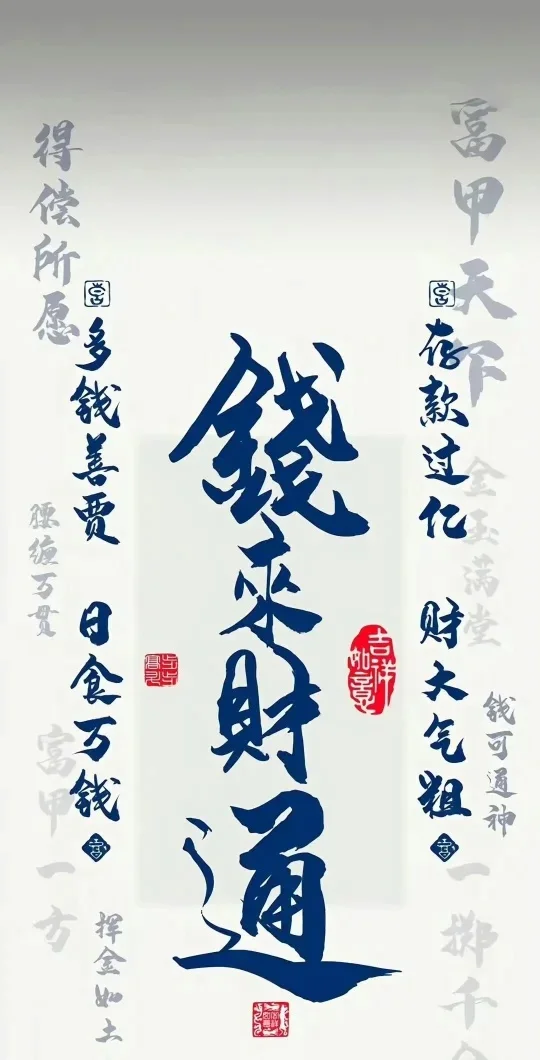 富甲天下
得偿所愿
存款过亿 财大气粗
錢來財通
多錢善贾 日食万錢
金玉满堂
腰缠万贯
吉祥如意
錢可通神
富甲一方
一掷千金
挥金如土